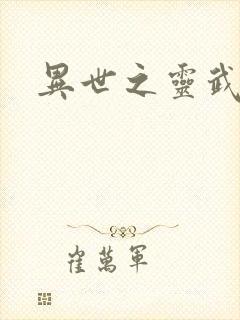 異世之靈武
崔萬軍